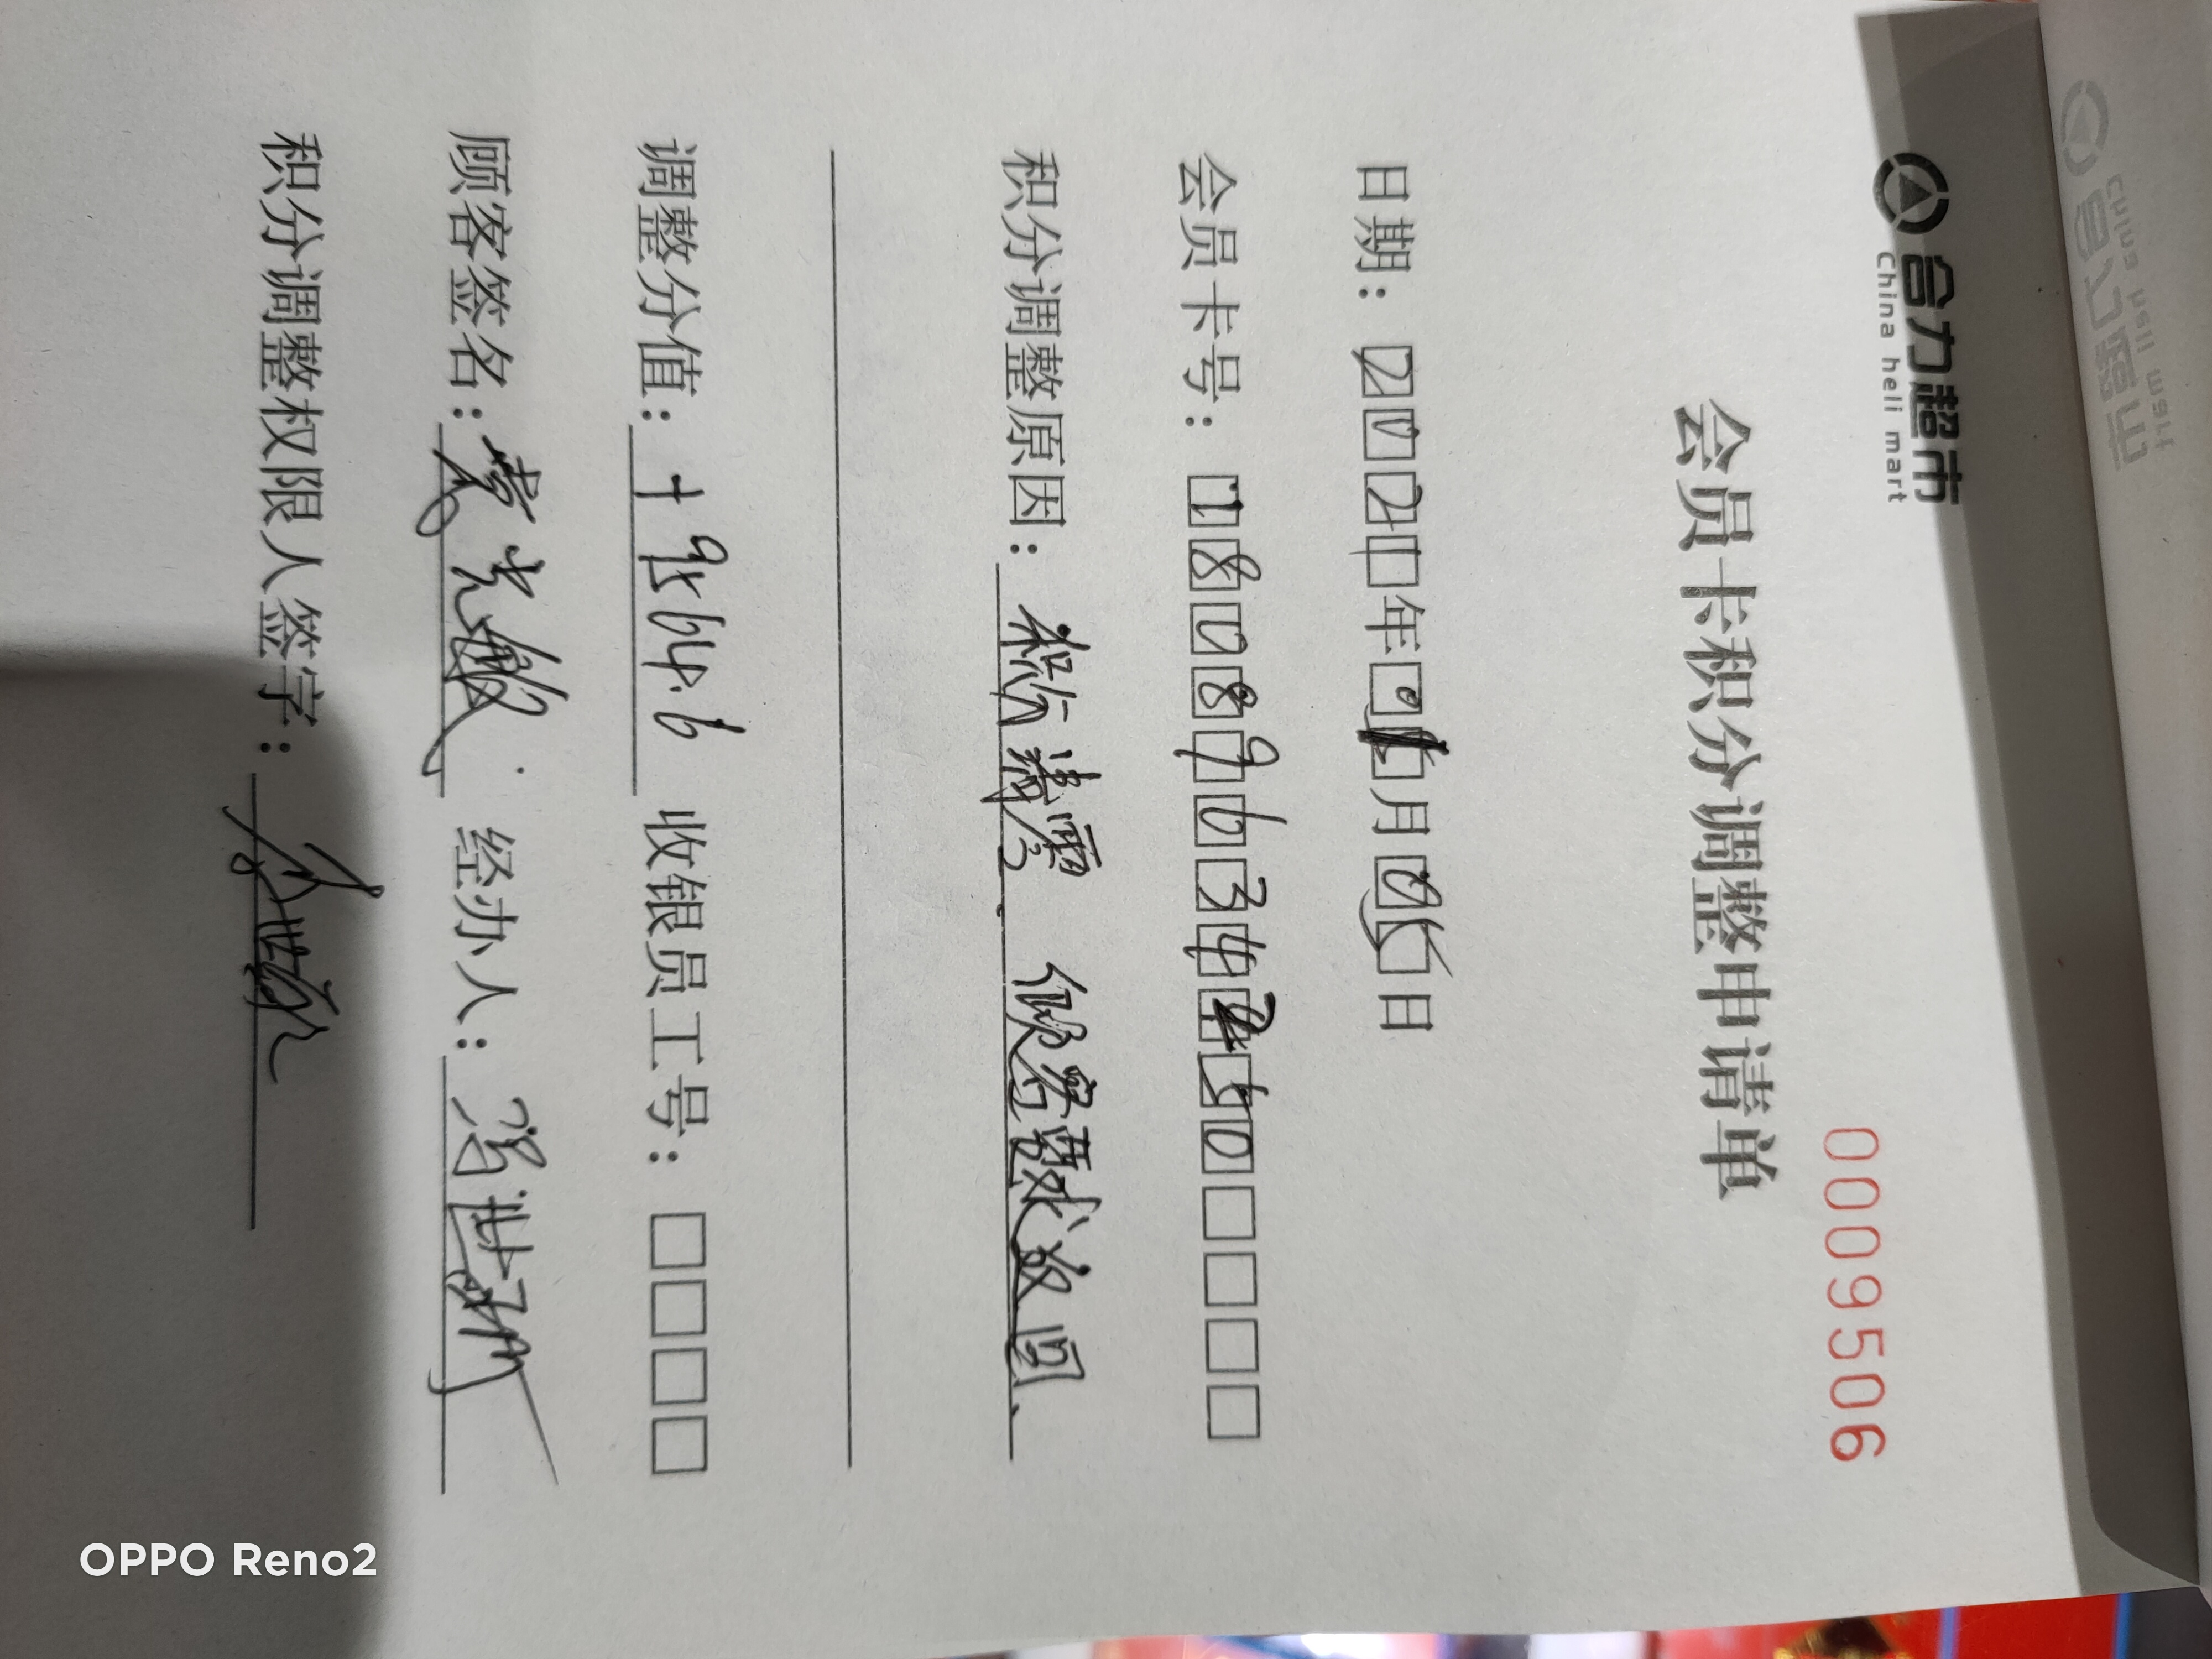 合力超市
China heli mart
0009506
会员卡积分调整申请单
日期：2021年01月05日
会员卡号：18089634250
积分调整原因：积分清零 顾客要求返回、
调整分值：+9564.6 收银员工号：
顾客签名： 经办人：
积分调整权限人签字：
OPPO Reno2